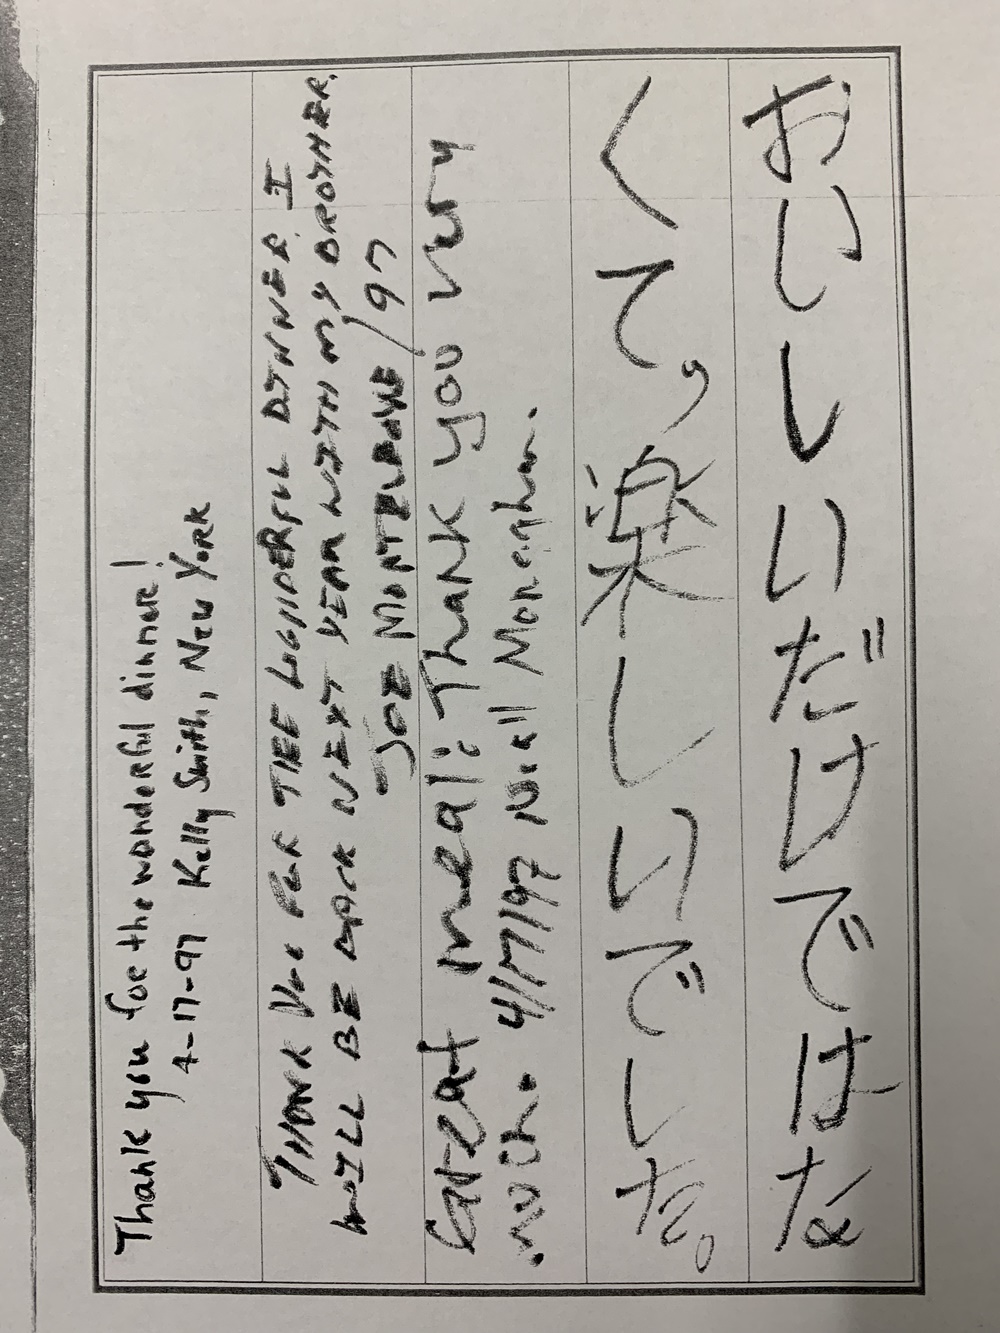 おいしいだけではな
くて、楽しいでした。
Great meal! Thank you very
much. 4/17/97 Niall Monaghan.
THANK YOU FOR THE WONDERFUL DINNER I
WILL BE BACK NEXT YEAR WITH MY BROTHER.
JOE MONTELEONE /97
Thank you for the wonderful dinner!
4-17-97 Kelly Smith, New York